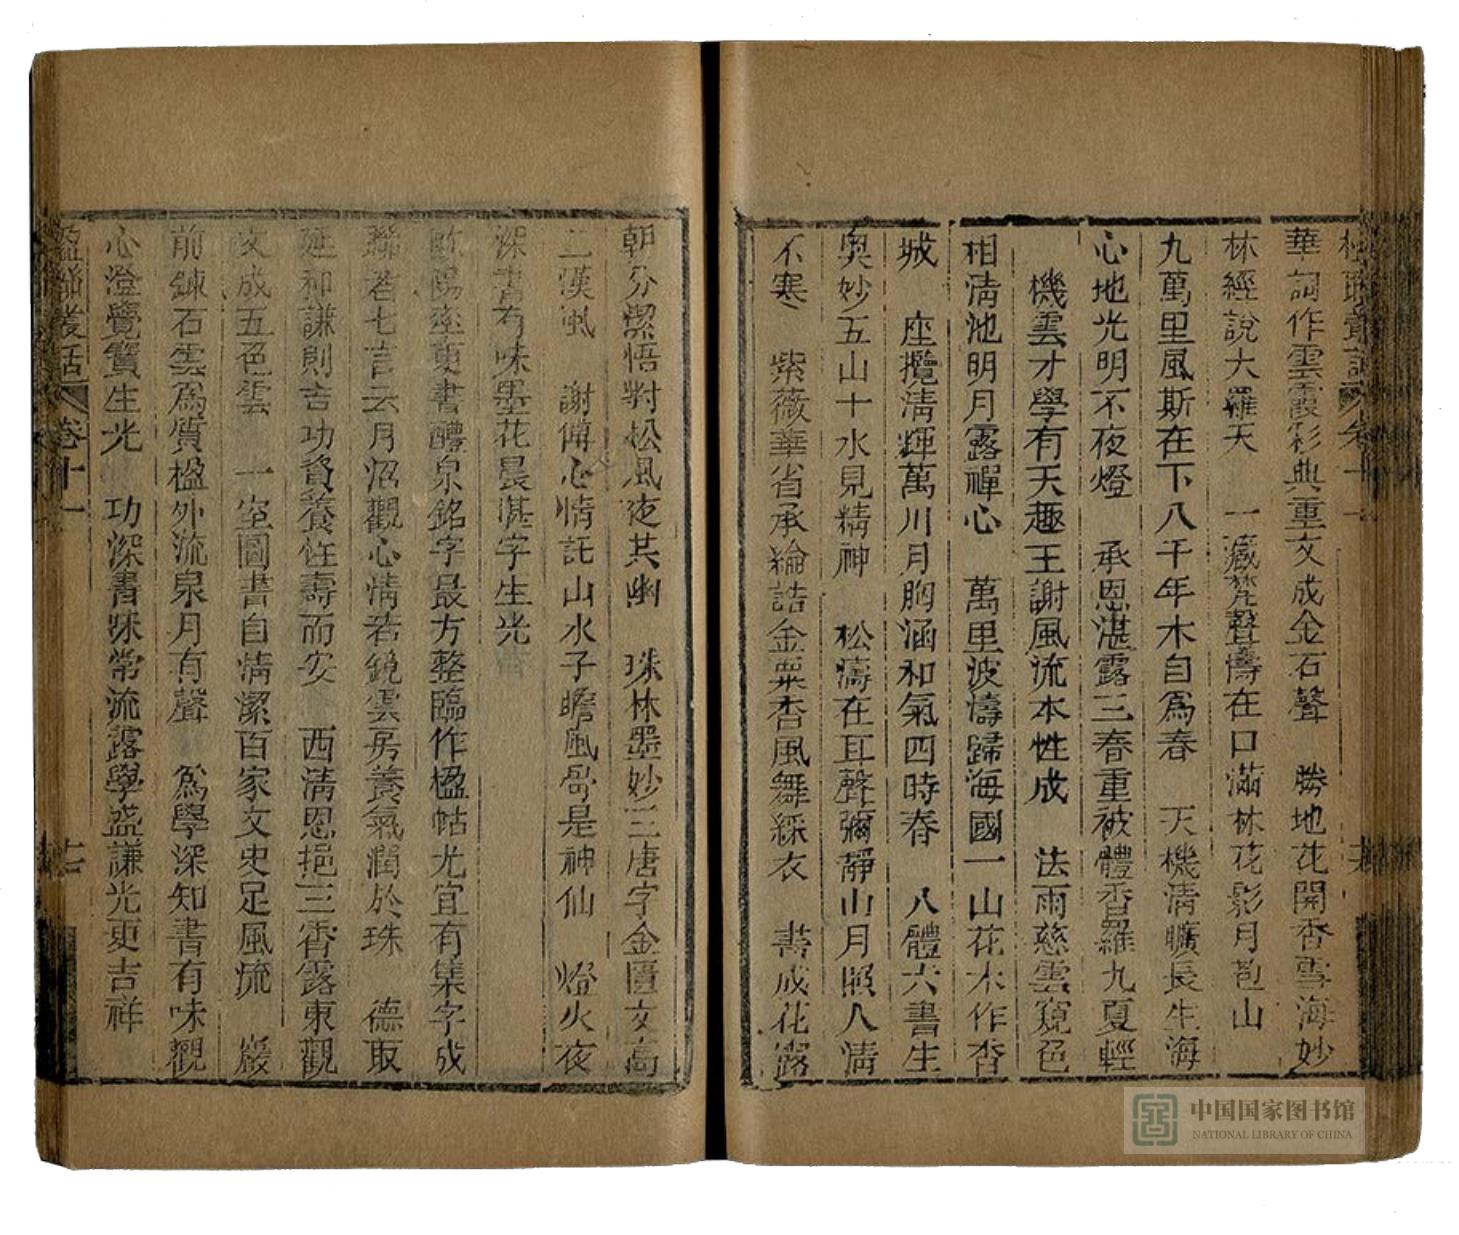 華詞作雲霞彩典重文成金石聲　勝地花開香雪海妙
林經說大羅天　一藏梵聲濤在口滿林花影月苞山
九萬里風斯在下八千年木自爲春　天機清曠長生海
心地光明不夜燈　承恩湛露三春重被體香羅九夏輕
機雲才學有天趣王謝風流本性成　法雨慈雲窺色
相清池明月露禪心　萬里波濤歸海國一山花木作杏
城　座攬清輝萬川月胸涵和氣四時春　八體六書生
奧妙五山十水見精神　松濤在耳聲彌靜山月照人清
不寒　紫薇華省承綸誥金粟杏風舞綵衣　書成花露
朝分潔悟對松風夜其幽　珠林墨妙三唐字金匱文高
二漢風　謝傅心情託山水子瞻風骨是神仙　燈火夜
深書有味墨花晨湛字生光
歐陽率更書醴泉銘字最方整臨作楹帖尤宜有集字成
聯者七言云月沼觀心情若鏡雲房養氣潤於珠　德取
延和謙則吉功資養性壽而安　西清恩挹三霄露東觀
文成五色雲　一室圖書自情潔百家文史足風流　巖
前鍊石雲爲質楹外流泉月有聲　爲學深知書有味觀
心澄覺質生光　功深書味常流露學盛謙光更吉祥
楹聯叢話　卷十一　十七
中国国家图书馆
NATIONAL LIBRARY OF CHINA